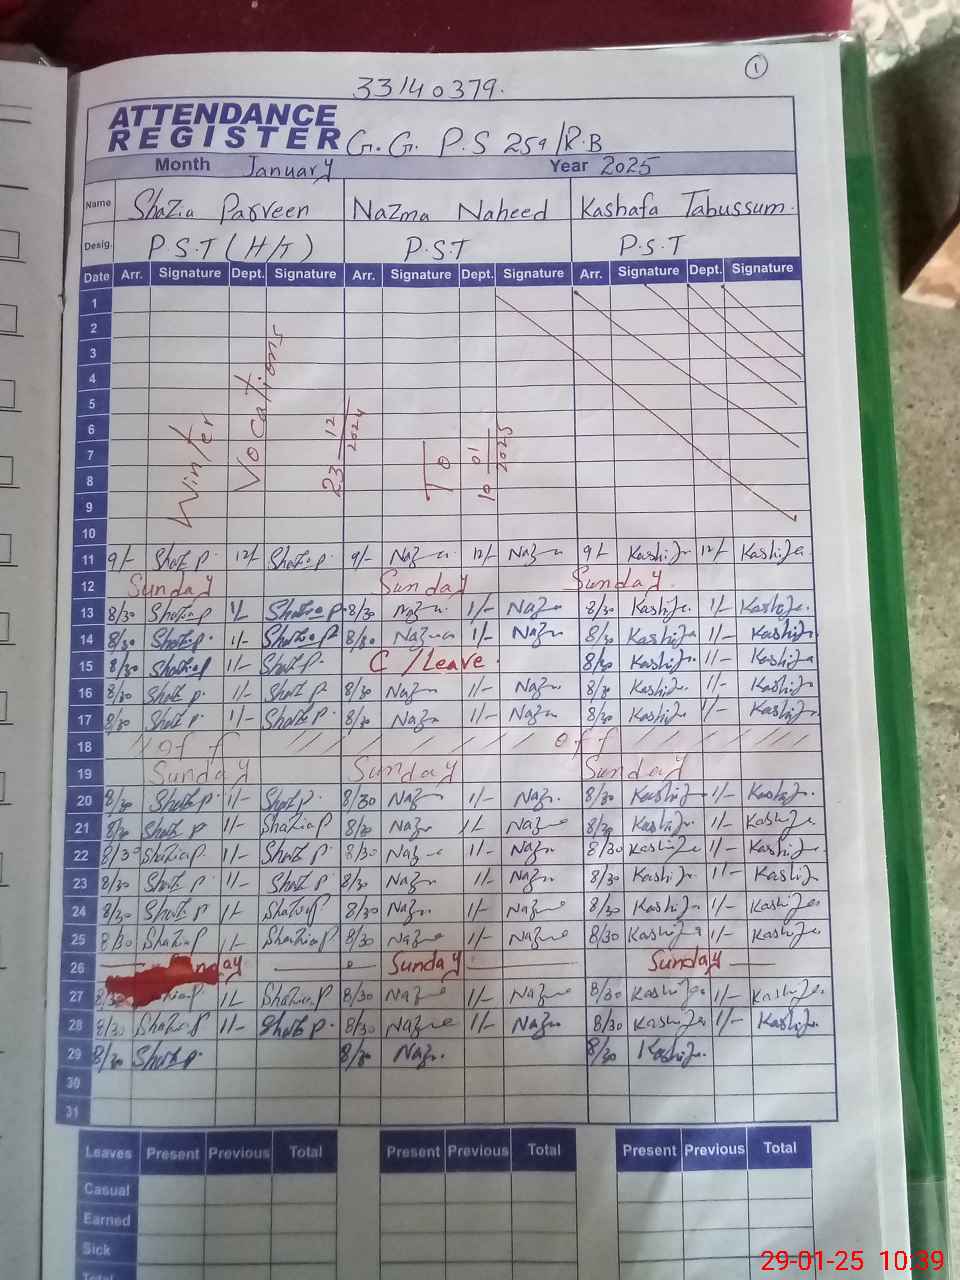 1
33140379.
ATTENDANCE
REGISTER G.G. P.S 259/R.B
Month January Year 2025
Name Shazia Parveen Nazma Naheed Kashafa Tabussum.
Desig. P.S.T (H/T) P.S.T P.S.T
Date Arr. Signature Dept. Signature Arr. Signature Dept. Signature Arr. Signature Dept. Signature
1
2
3
4
5
6
7
8
9
10
Winter Vocations 23 12 2024 To 10 01 2025
11 9/- Shaz P. 12/- Shazia P. 9/- Naz 12/- Naz 9/- Kashifa 12/- Kashifa
12 Sunday Sunday Sunday
13 8/30 Shazia P 1/- Shazia P. 8/30 Naz 1/- Naz 8/30 Kashifa 1/- Kashifa
14 8/30 Shazia P. 1/- Shazia P 8/30 Nazma 1/- Naz 8/30 Kashifa 1/- Kashifa
15 8/30 Shazia P 1/- Shaz P. C/Leave. 8/30 Kashifa 1/- Kashifa
16 8/30 Shaz P. 1/- Shaz P 8/30 Naz 1/- Naz 8/30 Kashifa 1/- Kashifa
17 8/30 Shaz P. 1/- Shaz P. 8/30 Naz 1/- Naz 8/30 Kashifa 1/- Kashifa
18 off off
19 Sunday Sunday Sunday
20 8/30 Shaz P. 1/- Shaz P. 8/30 Naz 1/- Naz 8/30 Kashifa 1/- Kashifa
21 8/30 Shaz P 1/- Shazia P 8/30 Naz 1/- Naz 8/30 Kashifa 1/- Kashifa
22 8/30 Shazia P. 1/- Shaz P. 8/30 Naz 1/- Naz 8/30 Kashifa 1/- Kashifa
23 8/30 Shaz P 1/- Shaz P 8/30 Naz 1/- Naz 8/30 Kashifa 1/- Kashifa
24 8/30 Shaz P 1/- Shazia P 8/30 Naz 1/- Naz 8/30 Kashifa 1/- Kashifa
25 8/30 Shazia P 1/- Shazia P 8/30 Naz 1/- Naz 8/30 Kashifa 1/- Kashifa
26 nday Sunday Sunday
27 8/30 1/- Shazia P. 8/30 Naz 1/- Naz 8/30 Kashifa 1/- Kashifa
28 8/30 Shazia P 1/- Shaz P. 8/30 Naz 1/- Naz 8/30 Kashifa 1/- Kashifa
29 8/30 Shaz P. 8/30 Naz 8/30 Kashifa
30
31
Leaves Present Previous Total Present Previous Total Present Previous Total
Casual
Earned
Sick
Total
29-01-25 10:39